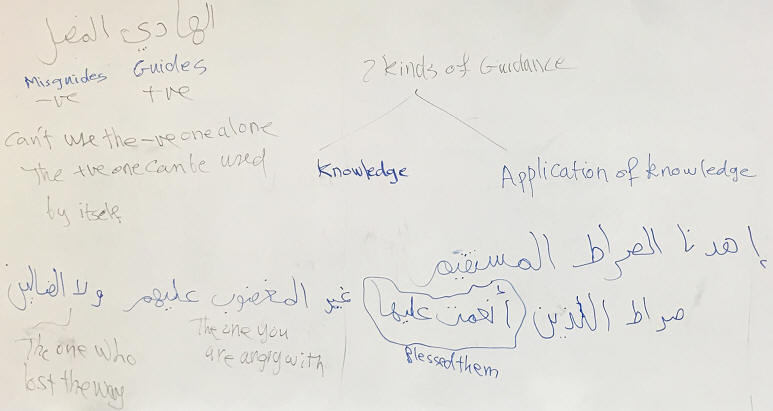 الهادي المضل
Misguides Guides
-ve +ve
Can't use the -ve one alone
The +ve one can be used
by itself
2 Kinds of Guidance
Knowledge
Application of knowledge
إهدنا الصراط المستقيم
صراط الذين أنعمت عليها غير المغضوب عليهم ولا الضالين
Blessed them
The one you
are angry with
The one who
lost the way